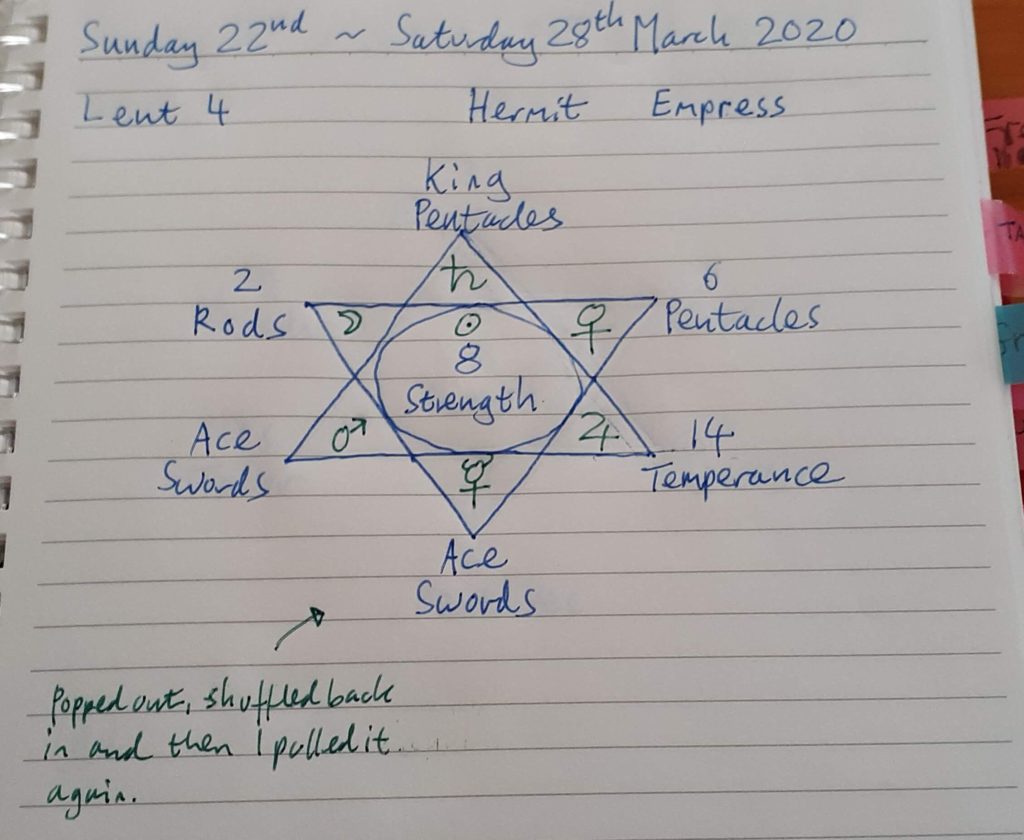 Sunday 22nd ~ Saturday 28th March 2020
Lent 4 Hermit Empress
King
Pentacles
2
Rods
6
Pentacles
♄
☽
☉
♀
8
Strength
Ace
Swords
♂
♃
14
Temperance
☿
Ace
Swords
Popped out, shuffled back
in and then I pulled it
again.